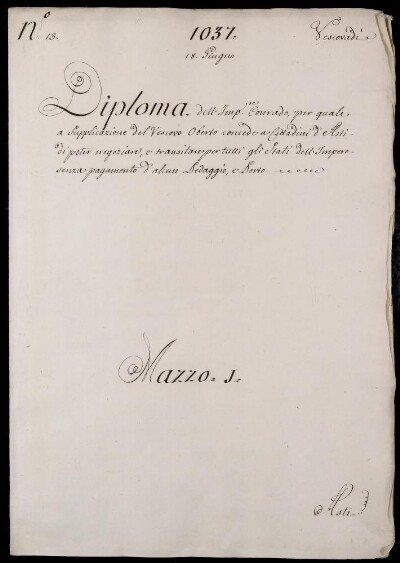 N.º 13.
1037.
Vescovadi
18. Giugno
Diploma dell'Imp.re Conrado, per quale
a supplicazione del Vescovo Oberto concede a Cittadini d'Asti
di poter negoziare, e transitare per tutti gli Stati dell'Impero
senza pagamento d'alcun Pedaggio, e Porto
Mazzo. 1.
Asti